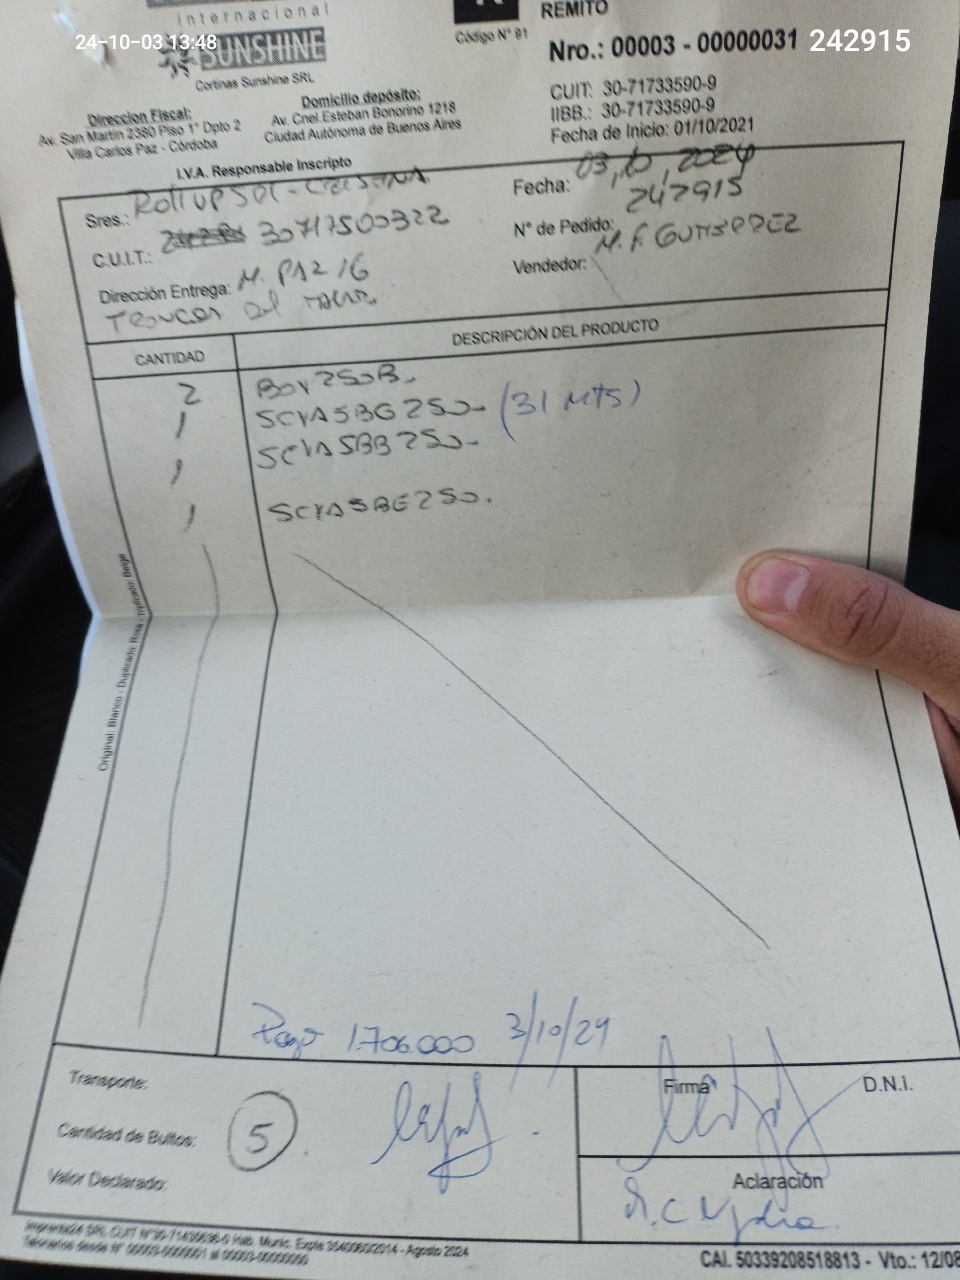 internacional
24-10-03 13:48
SUNSHINE
Cortinas Sunshine SRL
Direccion Fiscal:
Av. San Martin 2380 Piso 1° Dpto 2
Villa Carlos Paz - Córdoba
Domicilio depósito:
Av. Cnel.Esteban Bonorino 1218
Ciudad Autónoma de Buenos Aires
I.V.A. Responsable Inscripto
Código N° 91
REMITO
Nro.: 00003 - 00000031
242915
CUIT: 30-71733590-9
IIBB.: 30-71733590-9
Fecha de Inicio: 01/10/2021
Sres.: Roll UP Sol -
C.U.I.T.: 30717500322
Dirección Entrega: M. PAZ 16
Troncos del
Fecha: 03,10,2024
N° de Pedido: 242915
Vendedor: M. F. GUTIERREZ
CANTIDAD DESCRIPCIÓN DEL PRODUCTO
2 BOV250B.
1 SCVA5BG250- (31 MTS)
1 SCVA5BB250-
1 SCVA5BE250.
Original: Blanco - Duplicado: Rosa - Triplicado: Beige
Pago 1.706.000 3/10/24
Transporte:
Cantidad de Bultos: 5
Valor Declarado:
Firma D.N.i.
Aclaración
Agosto 2024
CAI. 50339208518813 - Vto.: 12/08